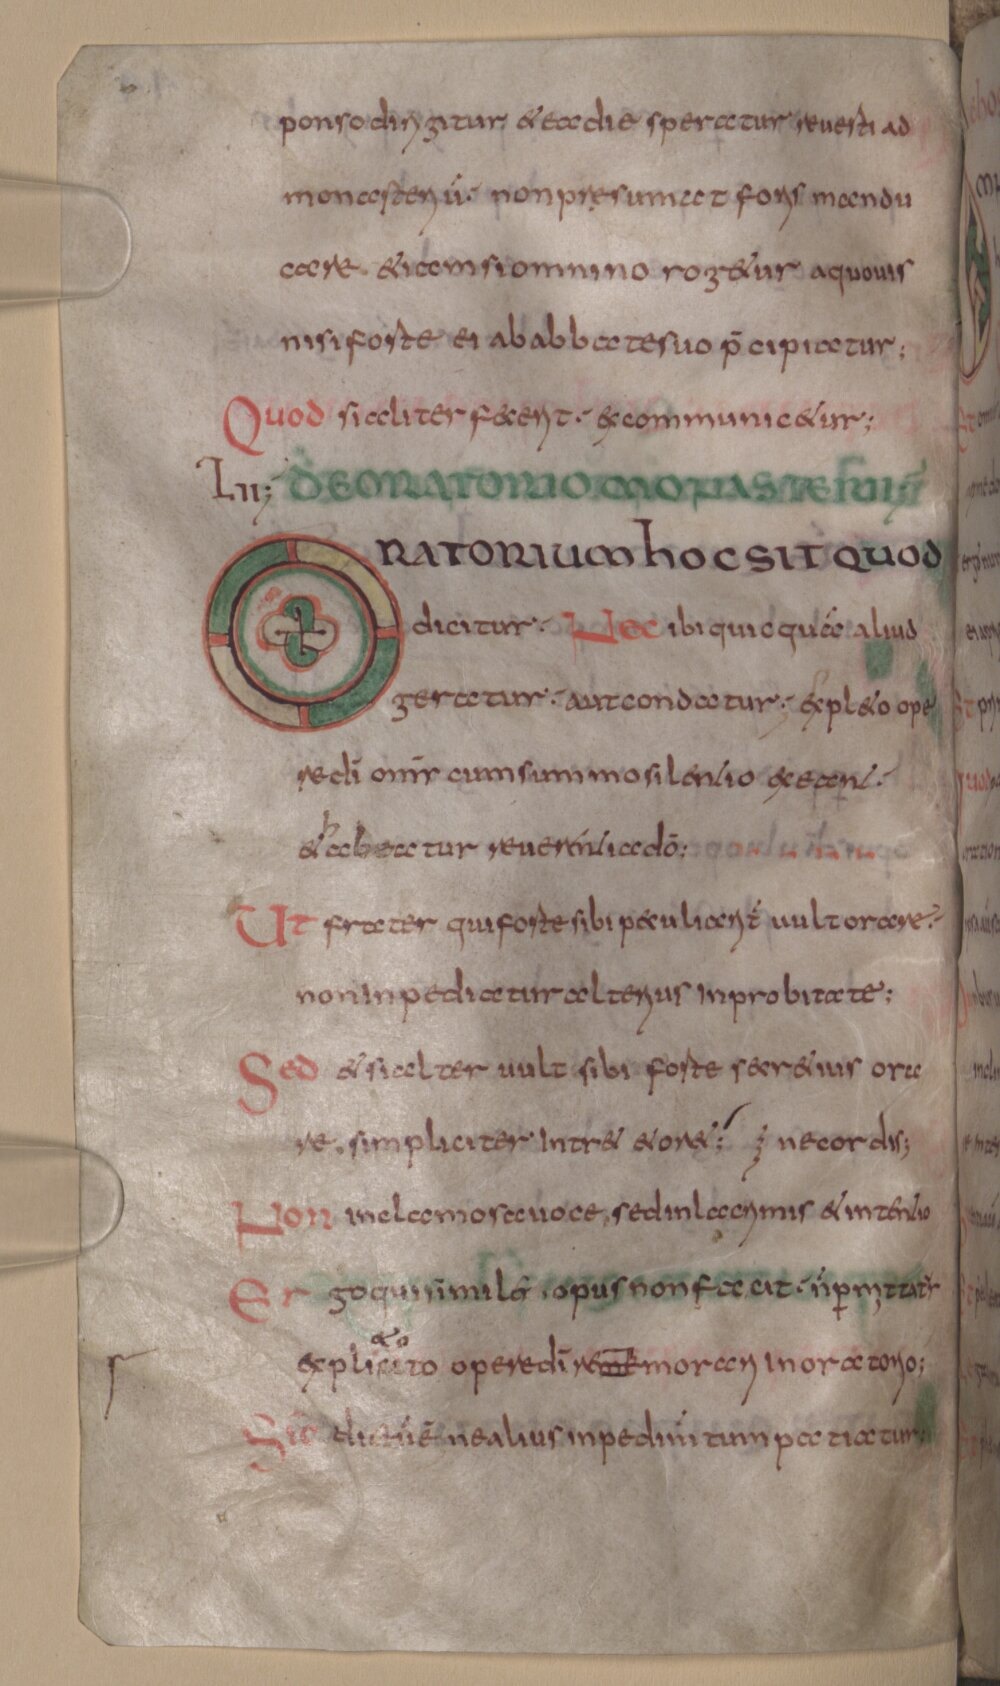 ponso dirigitur & ea die speratur reuerti ad
monasteriū· non presumat foris mandu
care· & iam si omnino rogetur a quouis
nisi forte ei ab abbate suo p̄cipiatur;
Quod si aliter fecerit· excommunicetur;
LII; DE ORATORIO MONASTERII
ORATORIUM HOC SIT QUOD
dicitur· Nec ibi quicquā aliud
geratur· aut condatur· expleto ope
re dī om̄s cum summo silentio exeant·
& habeatur reuerentia dō;
Ut frater qui forte sibi peculiarit̄ uult orare·
non inpediatur alterius inprobitate;
Sed & si alter uult sibi forte secretius ora
re· simpliciter intret & oret; necordis;
Non in clamosa uoce, sed in lacrimis & intentio
Ergo qui simile opus non facit· n̄ permittatur
explicito eo opere dī remorari in oratorio;
Sic dictū ē ne alius inpedimtum patiatur